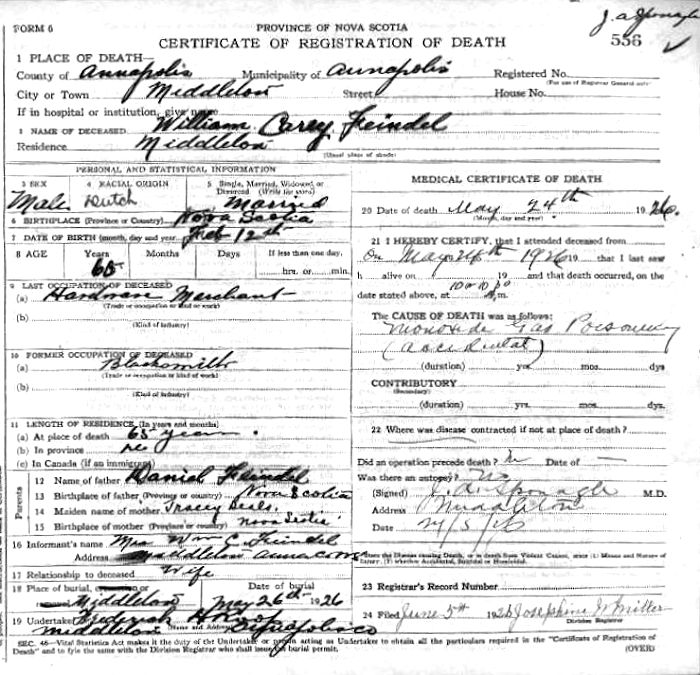 FORM 6
PROVINCE OF NOVA SCOTIA
CERTIFICATE OF REGISTRATION OF DEATH
556
1 PLACE OF DEATH—
County of Annapolis Municipality of Annapolis Registered No.
(For use of Registrar General only)
City or Town Middleton Street House No.
If in hospital or institution, give name
2 NAME OF DECEASED William Carey Feindel
Residence Middleton
(Usual place of abode)
PERSONAL AND STATISTICAL INFORMATION
3 SEX Male
4 RACIAL ORIGIN Dutch
5 Single, Married, Widowed or Divorced (Write the word) Married
6 BIRTHPLACE (Province or Country) Nova Scotia
7 DATE OF BIRTH (month, day and year) Feb 12th
8 AGE Years Months Days If less than one day,
65 hrs. or min.
9 LAST OCCUPATION OF DECEASED
(a) Hardware Merchant
(Trade or occupation or kind of work)
(b)
(Kind of Industry)
10 FORMER OCCUPATION OF DECEASED
(a) Blacksmith
(Trade or occupation or kind of work)
(b)
(Kind of Industry)
11 LENGTH OF RESIDENCE (In years and months)
(a) At place of death 65 years.
(b) In province
(c) In Canada (if an immigrant)
Parents
12 Name of father Daniel Feindel
13 Birthplace of father (Province or country) Nova Scotia
14 Maiden name of mother Tracey Beals
15 Birthplace of mother (Province or country) Nova Scotia
16 Informant's name Mrs Wm C. Feindel
Address Middleton
17 Relationship to deceased Wife
18 Place of burial, Date of burial
Middleton May 26th 1926
19 Undertaker Frederick
(Name and Address)
Middleton Annapolis Co
MEDICAL CERTIFICATE OF DEATH
20 Date of death May 24th 1926.
(Month, day and year)
21 I HEREBY CERTIFY, that I attended deceased from
On May 24th 1926 19 that I last saw
h alive on 19 and that death occurred, on
date stated above, at m.
The CAUSE OF DEATH was as follows:
Monoxide Gas Poisoning
(accidental)
(duration) yrs. mos. dys
CONTRIBUTORY
(Secondary)
(duration) yrs. mos. dys.
22 Where was disease contracted if not at place of death?
Did an operation precede death? Date of —
Was there an autopsy? no
(Signed) J. A. Sponagle M.D.
Address Middleton
Date
State the Disease causing Death, or in death from Violent Causes, state (1) Means and Nature of Injury; (2) whether Accidental, Suicidal or Homicidal.
23 Registrar's Record Number
24 Filed June 5th 1926 Josephine W Miller
Division Registrar
SEC. 46—Vital Statistics Act makes it the duty of the Undertaker or person acting as Undertaker to obtain all the particulars required in the "Certificate of Registration of
Death" and to file the same with the Division Registrar who shall issue burial permit. (OVER)